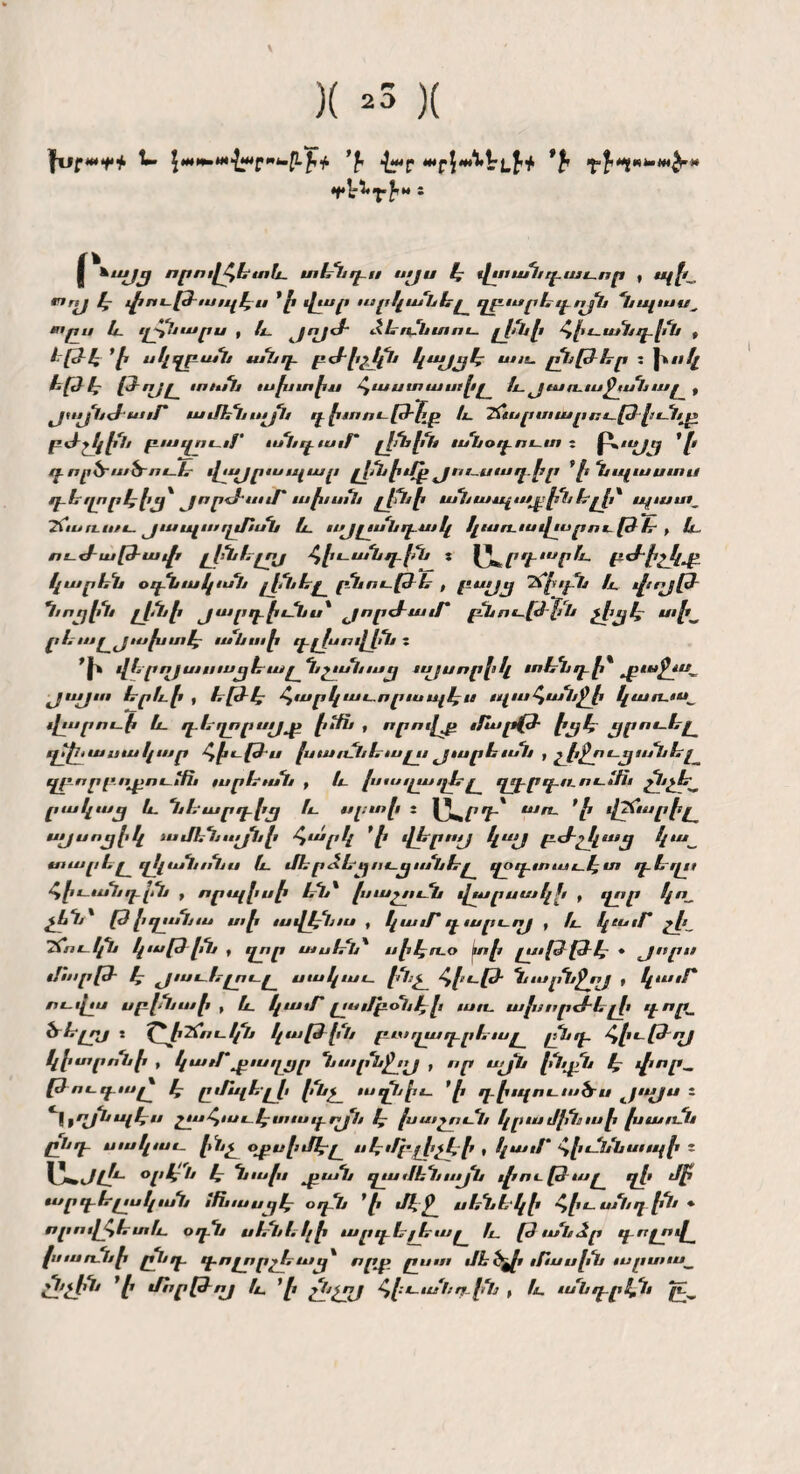 )( 25 )(
Խրատք և Նախազգուշութիւնք 'ի վար արկանելի 'ի դիպուածս
Բայց որովհետև տենդս այս է վտանգաւոր , պի֊
տոյ է փութապէս 'ի վար արկանել զբարեգոյն նպաս֊
տըս և զհնարս , և յոյժ ձեռնտու լինի հիւանդին ,
եթէ 'ի սկզբան անդ բժիշկն կայցէ առ ընթեր : Իսկ
եթէ թոյլ տան ախտիս հաստատիլ և յառաջանալ ,
յայնժամ ամենայն գիտութիք և ճարտարութիւնք
բժշկին բազում անգամ լինին անօգուտ : Բայց 'ի
գործածուէ վայրապար լինիմք յուսադիր 'ի նպաստս
դեղորէից՝ յորժամ ախտն լինի անապաքինելի՝ պատ֊
ճառաւ յապաղման և այլանդակ կառավարութե , և
ուժաթափ լինելոյ հիւանդին : Արդարև բժիշկք
կարեն օգնական լինել բնութե , բայց ճիգն և փոյթ
նոցին լինի յարդիւնս՝ յորժամ բնութին չիցէ տի֊
րեալ յախտէ անտի գլխովին :
'Ի վերոյասացեալ նշանաց այսորիկ տենդի՝ քաջա֊
յայտ երևի , եթէ հարկաւորապէս պահանջի կառա֊
վարուի և դեղորայք ինն , որովք մարթ իցէ ցրուել
զվնասակար հիւթս խառնեալս յարեան , չիջուցանել
զբորբոքումն արեան , և խաղաղել զդրդռումն ջնջե֊
րակաց և նեարդից և սրտի : Արդ՝ առ 'ի վճարիլ
այսոցիկ ամենայնի հարկ 'ի վերոյ կայ բժշկաց կա֊
տարել զկանոնս և մերձեցուցանել զօգտաւէտ դեղս
հիւանդին , որպիսի են՝ խաշուն վարսակի , զոր կո֊
չեն՝ թիզանա տի ավէնա , կամ գարւոյ , և կամ չի֊
ճուկն կաթին , զոր ասեն՝ սիէռօ տի լաթթէ • յորս
մարթ է յաւելուլ սակաւ ինչ հիւթ նարնջոյ , կամ
ուվա սբինաի , և կամ լամբօնէի առ ախորժելի գոր֊
ծելոյ : Չիճուկն կաթին բաղադրեալ ընդ հիւթոյ
կիտրոնի , կամ քաղցր նարնջոյ , որ այն ինքն է փոր֊
թուգալ՝ է ըմպելի ինչ ազնիւ 'ի դիպուածս յայս :
Նոյնպէս շահաւէտագոյն է խաշուն կրամինաի խառն
ընդ սակաւ ինչ օքսիմէլ սէմբլիչէի , կամ հիւննապի :
Այլև օրէն է նախ քան զամենայն փութալ զի մի
արգելական մնասցէ օդն 'ի մէջ սենեկի հիւանդին •
որովհետև օդն սենեկի արգելեալ և թանձր գոլով
խառնի ընդ գոլորշեաց՝ որք ըստ մեծի մասին արտա֊
շնչին 'ի մորթոյ և 'ի շնչոյ հիւանդին , և անդրէն ը֊